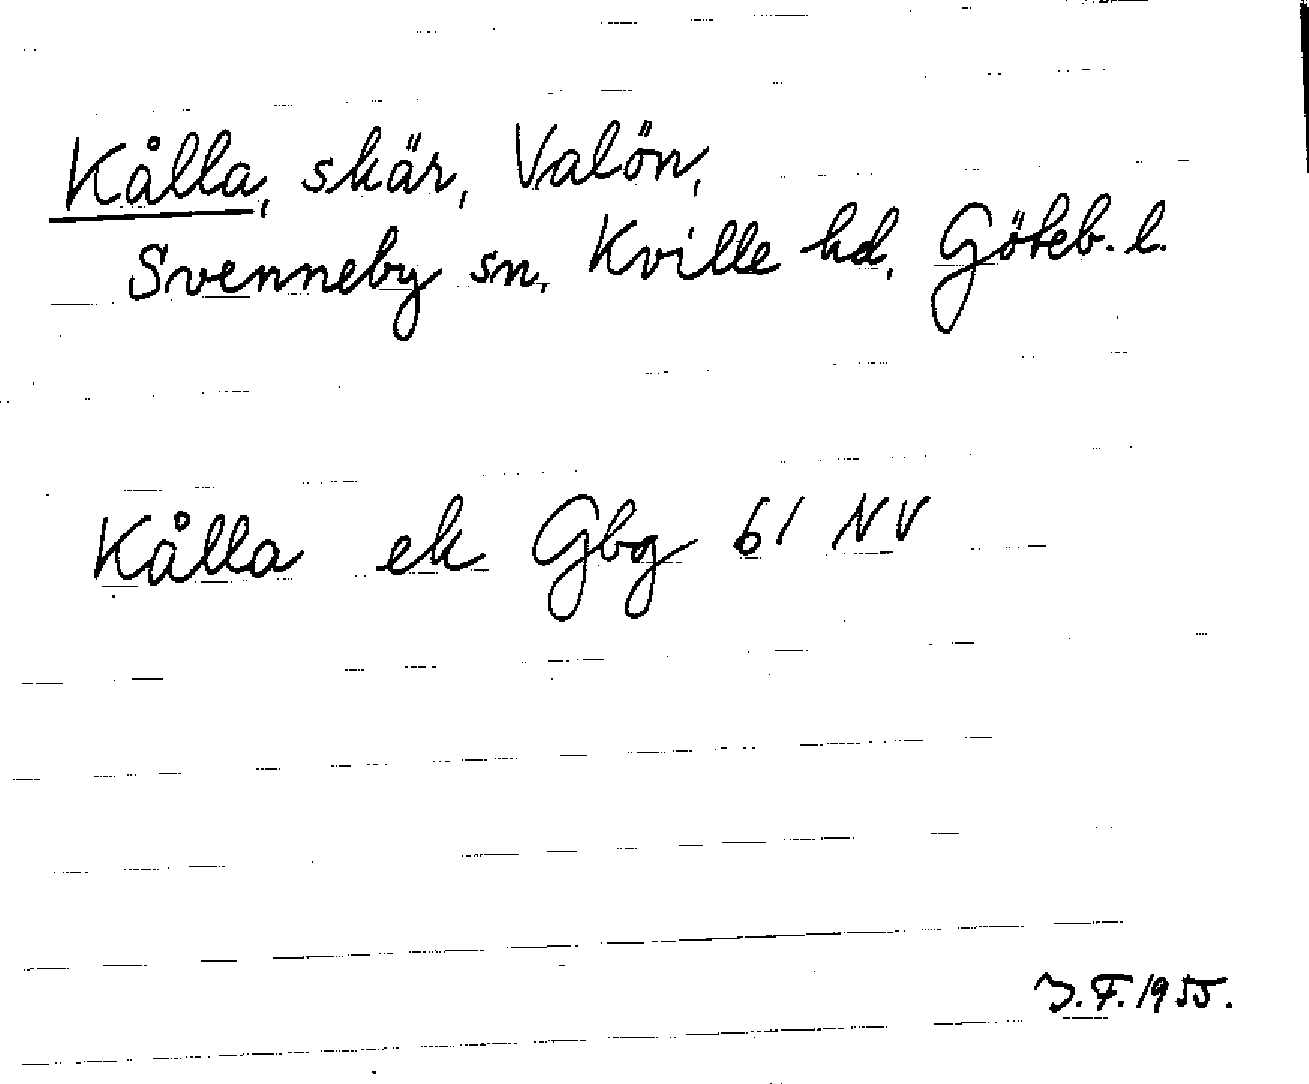 Kålla, skär, Valön,
Svenneby sn, Kville hd, Göteb. l.
Kålla ek Gbg 61 NV
J.F. 1955.